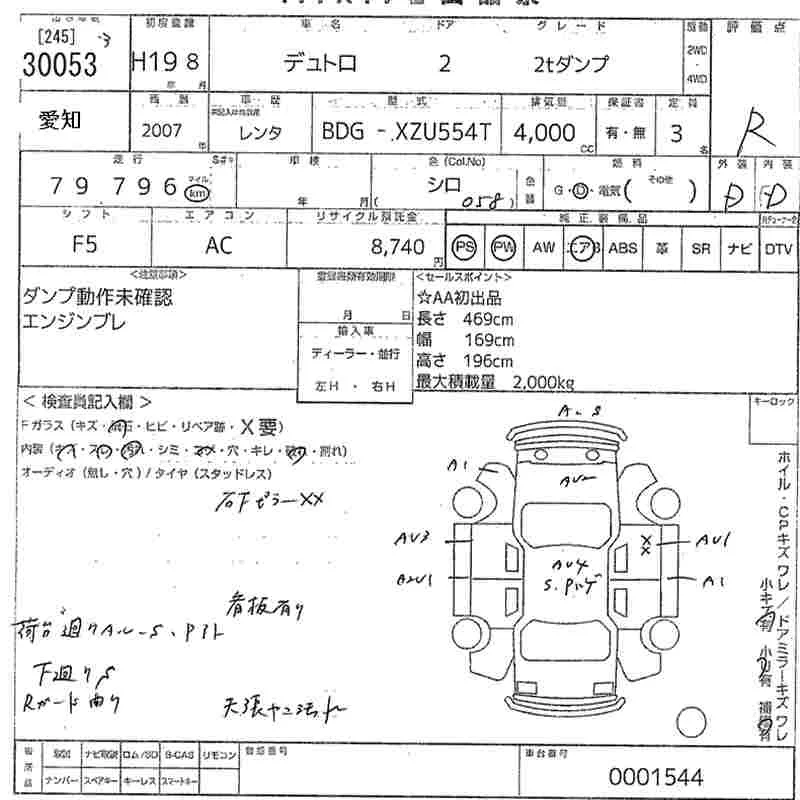 [245]
30053
初度登録
H19 8
年 月
車 名
デュトロ
ドア
2
グレード
2tダンプ
駆動
2WD
・
4WD
評 価 点
R
愛知
西 暦
2007
年
車 歴
レンタ
型 式
BDG - XZU554T
排気量
4,000
cc
保証書
有・無
定 員
3
名
走 行
79 796
マイル
km
車 検
年 月
色 (Col.No)
シロ
( 058 )
色替
燃 料
G・D・電気( その他 )
外 装
D
内 装
D
シ フ ト
F5
エ ア コ ン
AC
リサイクル預託金
8,740
円
純 正 装 備 品
PS
PW
AW
エアB
ABS
革
SR
ナビ
DTV
<注意事項>
ダンプ動作未確認
エンジンブレ
登録書類有効期限
月 日
輸 入 車
ディーラー・並行
左H ・ 右H
<セールスポイント>
☆AA初出品
長さ 469cm
幅 169cm
高さ 196cm
最大積載量 2,000kg
< 検査員記入欄 >
Fガラス (キズ・飛石・ヒビ・リペア跡・X要)
内装 (キズ・スレ・汚れ・シミ・コゲ・穴・キレ・破れ・割れ)
オーディオ (無し・穴) / タイヤ (スタッドレス)
右Fピラー XX
看板有り
荷台廻りAル-S、Pスト
下廻りS
Rガード曲り
キーロック
A1
AU3
AU4
AU1
XX
A1
ホイル・CPキズ ワレ / ドアミラーキズ ワレ
小キズ有 小凹有 補修有
取説
ナビ取説
ロム/SD
B-CAS
リモコン
ナンバー
スペアキー
キーレス
スマートキー
登録番号
車台番号
0001544